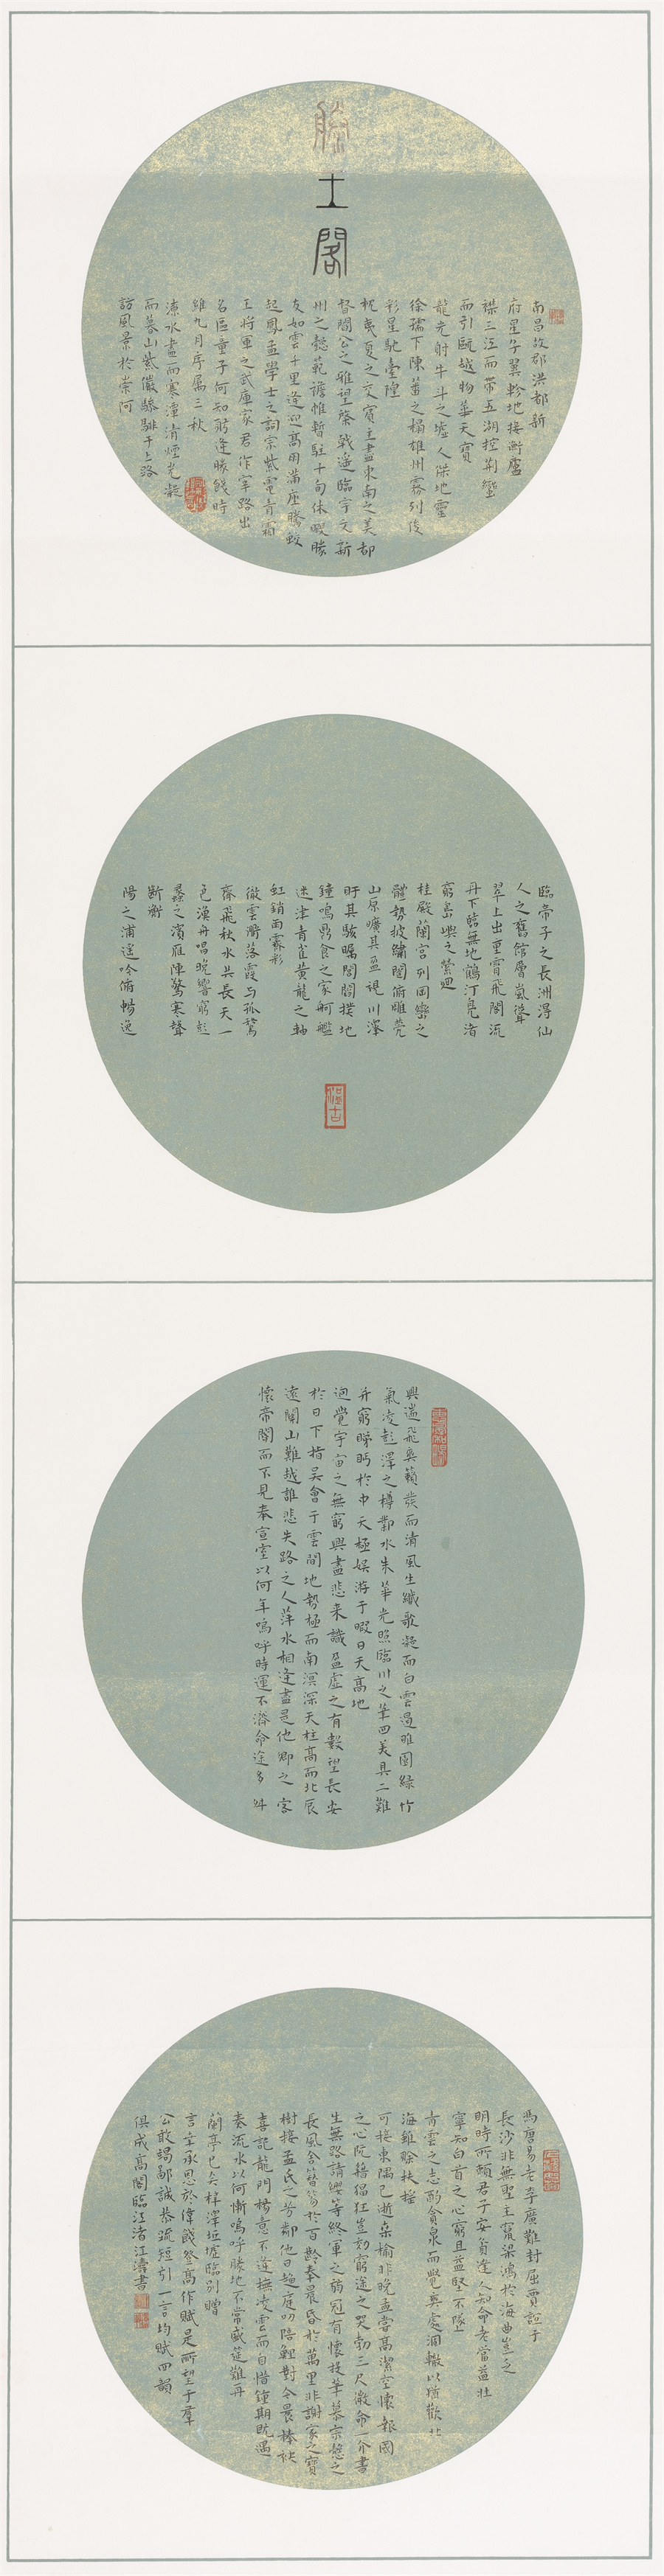 滕王閣
南昌故郡洪都新
府星分翼軫地接衡廬
襟三江而帶五湖控荆蠻
而引甌越物華天寶
龍光射牛斗之墟人傑地靈
徐孺下陳蕃之榻雄州霧列俊
彩星馳臺隍
枕夷夏之交賓主盡東南之美都
督閻公之雅望棨戟遥臨宇文新
州之懿範襜帷暫駐十旬休暇勝
友如雲千里逢迎高朋滿座騰蛟
起鳳孟學士之詞宗紫電青霜
王將軍之武庫家君作宰路出
名區童子何知躬逢勝餞時
維九月序屬三秋
潦水盡而寒潭清煙光凝
而暮山紫儼驂騑于上路
訪風景於崇阿
臨帝子之長洲得仙
人之舊館層巒聳
翠上出重霄飛閣流
丹下臨無地鶴汀鳧渚
窮島嶼之縈迴
桂殿蘭宫列岡巒之
體勢披繡闥俯雕甍
山原曠其盈視川澤
盱其駭矚閭閻撲地
鐘鳴鼎食之家舸艦
迷津青雀黃龍之軸
虹銷雨霽彩
徹雲衢落霞与孤鶩
齊飛秋水共長天一
色漁舟唱晚響窮彭
蠡之濱雁陣驚寒聲
断衡
陽之浦遥吟俯暢逸
興遄飛爽籟發而清風生纖歌凝而白雲遏睢園緑竹
氣凌彭澤之樽鄴水朱華光照臨川之筆四美具二難
并窮睇眄於中天極娱游于暇日天高地
迥覺宇宙之無窮興盡悲来識盈虚之有數望長安
於日下指吴會于雲間地勢極而南溟深天柱高而北辰
遠關山難越誰悲失路之人萍水相逢盡是他鄉之客
懷帝閽而不見奉宣室以何年嗚呼時運不濟命途多舛
馮唐易老李廣難封屈賈誼于
長沙非無聖主竄梁鴻於海曲豈乏
明時所賴君子安貧達人知命老當益壯
寧知白首之心窮且益堅不墜
青雲之志酌貪泉而覺爽處涸轍以猶歡北
海雖賒扶摇
可接東隅已逝桑榆非晚孟嘗高潔空懷報國
之心阮籍猖狂豈效窮途之哭勃三尺微命一介書
生無路請纓等終軍之弱冠有懷投筆慕宗慤之
長風舍簪笏於百齡奉晨昏於萬里非謝家之寶
樹接孟氏之芳鄰他日趨庭叨陪鯉對今晨捧袂
喜託龍門楊意不逢撫凌雲而自惜鍾期既遇
奏流水以何慚嗚呼勝地不常盛筵難再
蘭亭已矣梓澤坵墟臨别贈
言幸承恩於偉餞登高作賦是所望于羣
公敢竭鄙誠恭疏短引一言均賦四韻
俱成高閣臨江渚江濤書